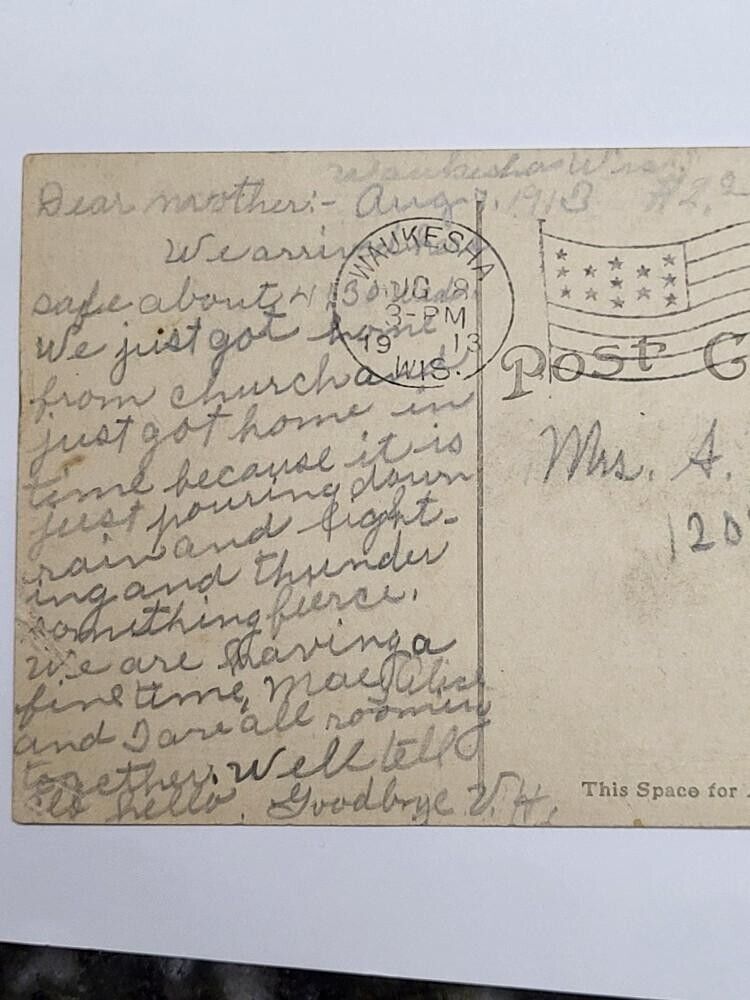 Waukesha Wis.
Dear mother:- Aug 7, 1913 #2.
We arrived
safe about 4:30
We just got home
from church and
just got home in
time because it is
just pouring down
rain and light-
ing and thunder
something fierce.
We are having a
fine time, Mae, Alice
and I are all rooming
together. Well tell
hello. Goodbye V. H.
WAUKESHA
AUG 8
3-PM
19 13
WIS.
Post C
Mrs. A.
120
This Space for